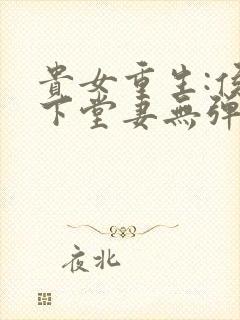 貴女重生:侯
下堂妻無彈
夜北